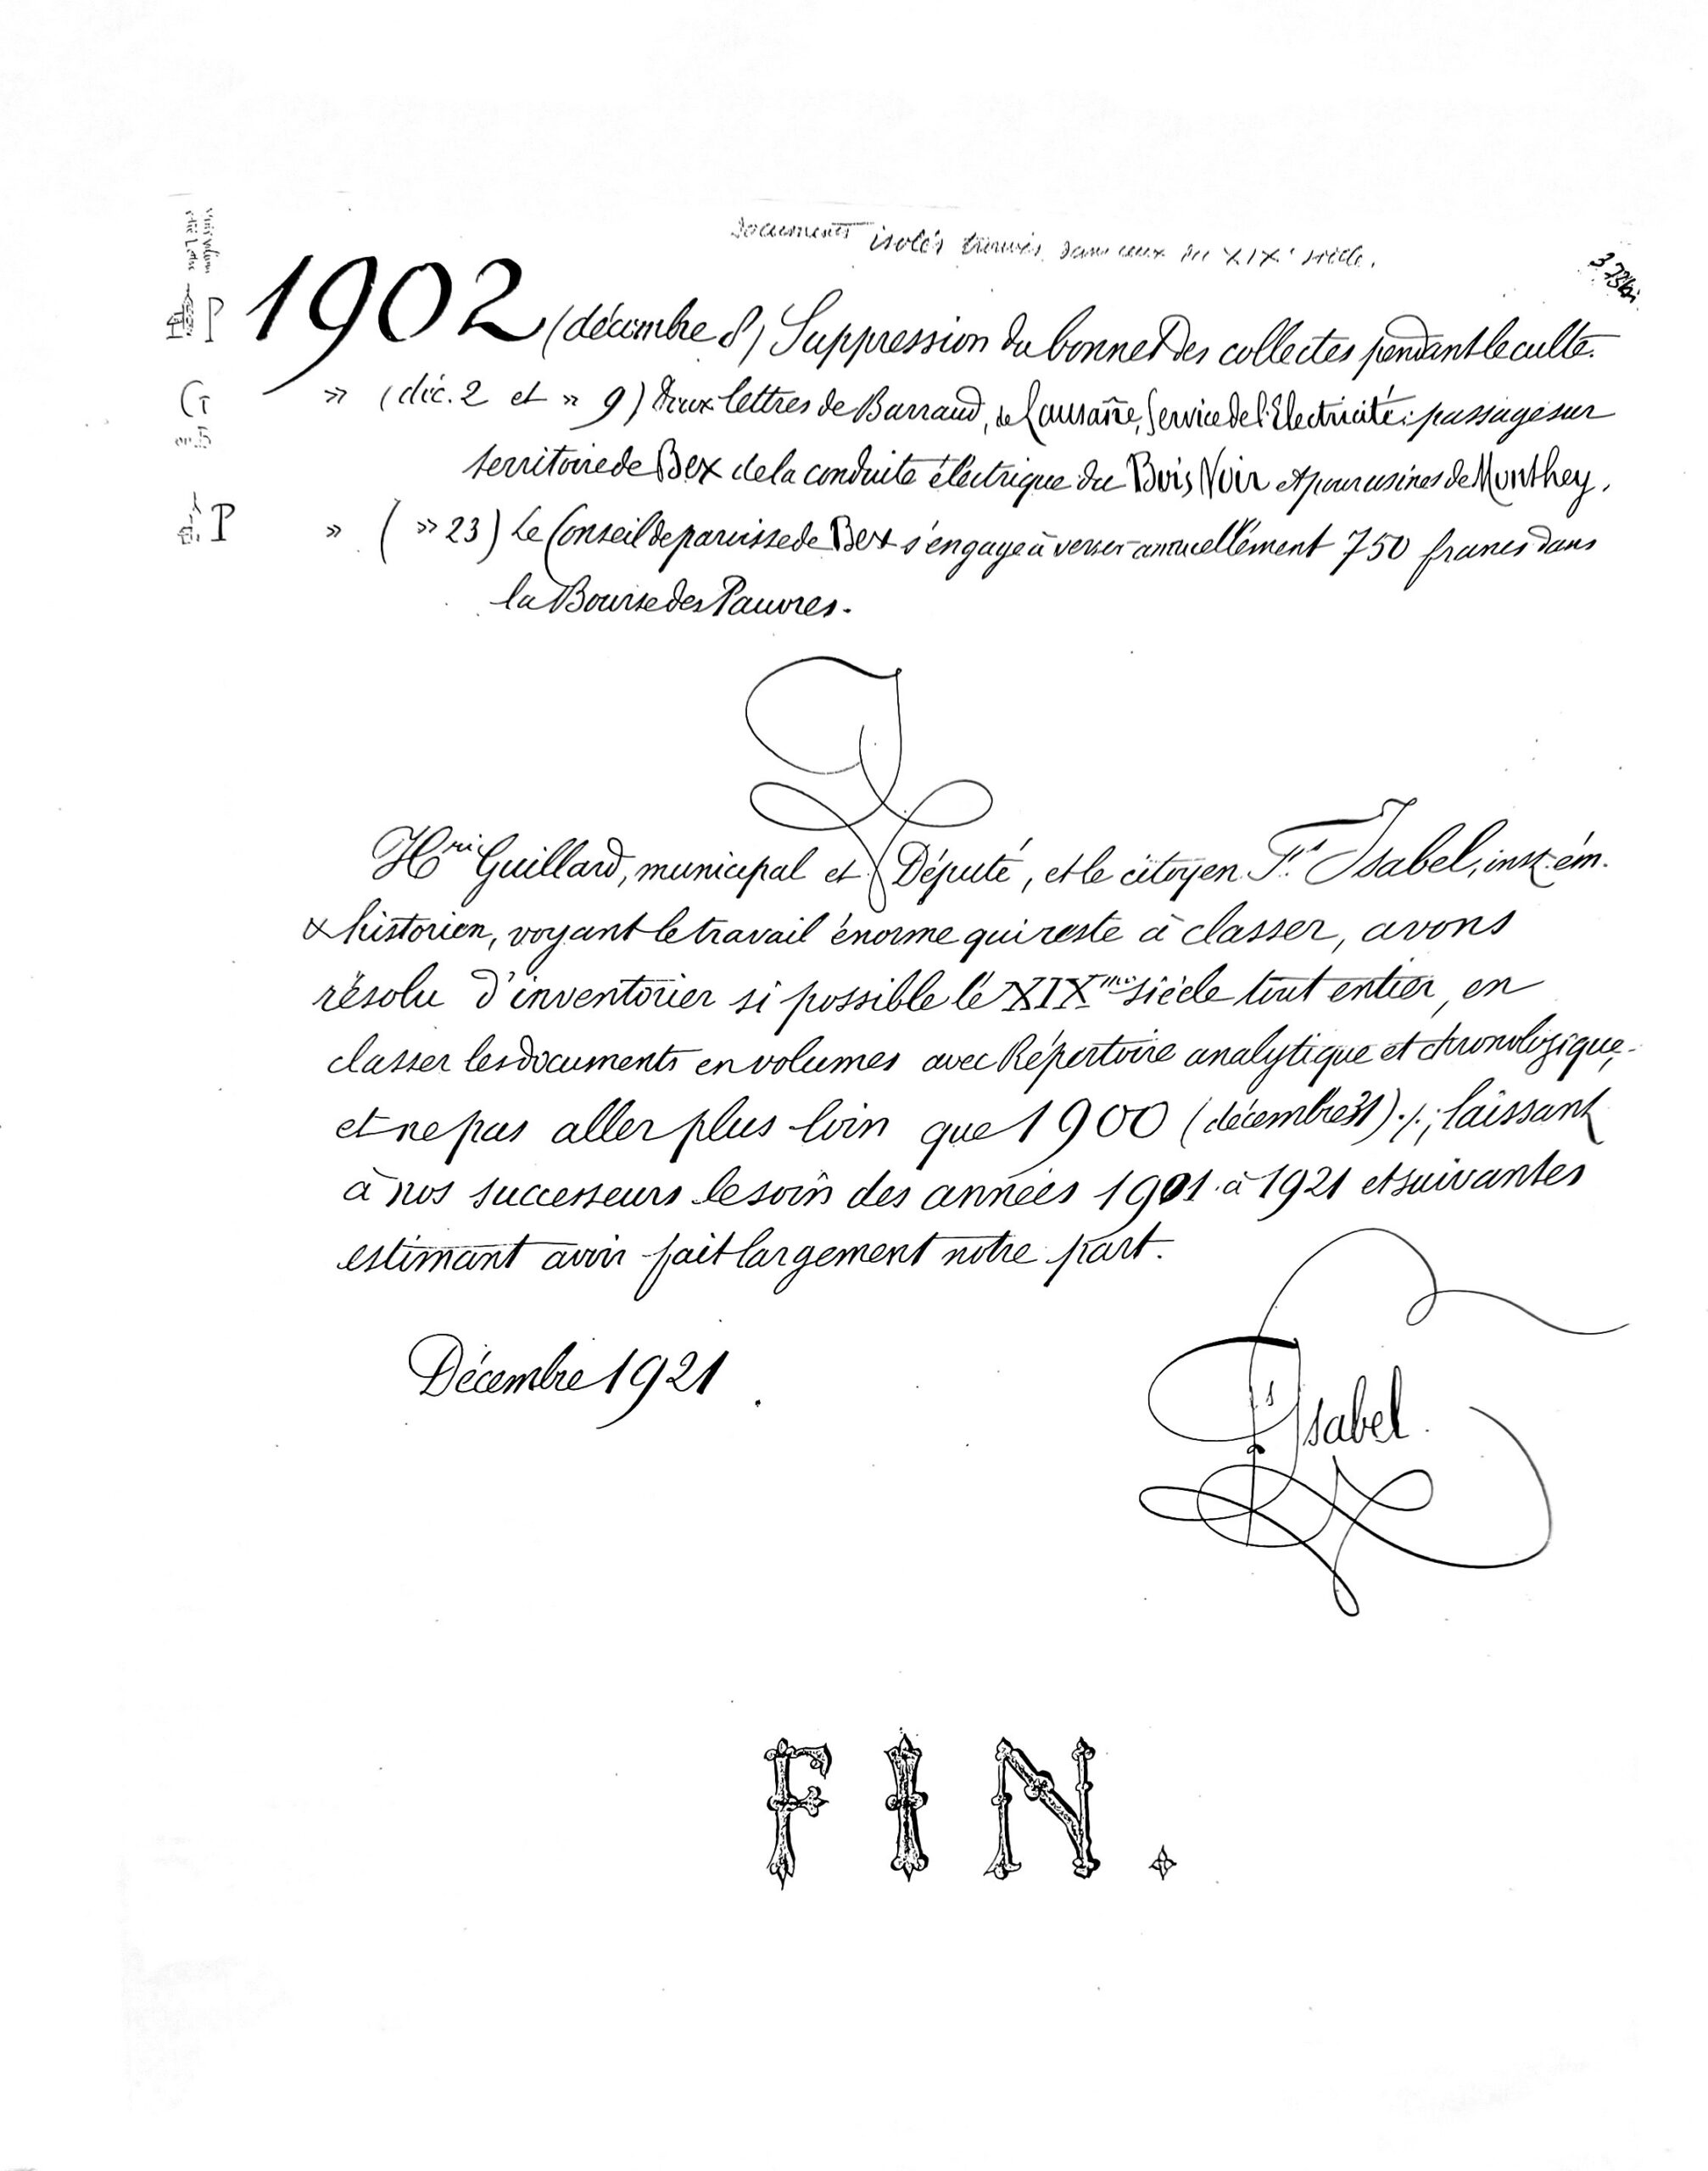 Documents isolés trouvés dans ceux du XIXe siècle.
P 1902 (décembre 8) Suppression du bonnet des collectes pendant le culte.
G » (déc. 2 et » 9) Deux lettres de Barraud, de Lausanne, Service de l'Electricité: passage sur
territoire de Bex de la conduite électrique du Bois Noir et pour usines de Monthey.
P » ( » 23) Le Conseil de paroisse de Bex s'engage à verser annuellement 750 francs dans
la Bourse des Pauvres.
Hri Guillard, municipal et Député, et le citoyen Fs Isabel, inst. ém.
& historien, voyant le travail énorme qui reste à classer, avons
résolu d'inventorier si possible le XIXme siècle tout entier, en
classer les documents en volumes avec Répertoire analytique et chronologique,
et ne pas aller plus loin que 1900 (décembre 31) ./.; laissant
à nos successeurs le soin des années 1901 à 1921 et suivantes
estimant avoir fait largement notre part.
Décembre 1921.
Fs Isabel.
FIN.